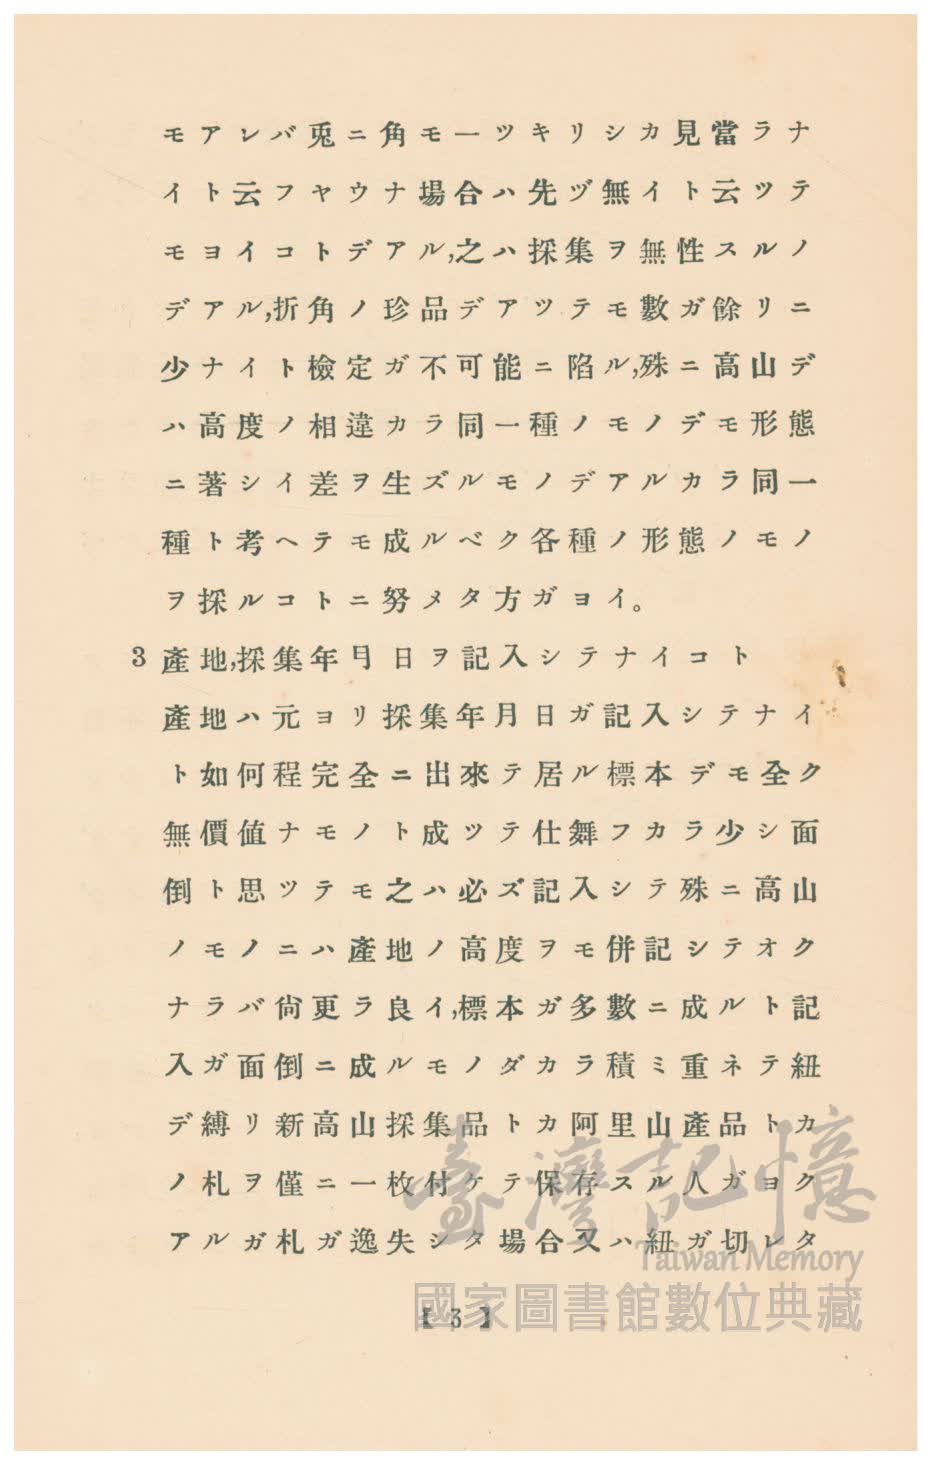 モアレバ兎ニ角モ一ツキリシカ見當ラナ
イト云フヤウナ場合ハ先ヅ無イト云ツテ
モヨイコトデアル,之ハ採集ヲ無性スルノ
デアル,折角ノ珍品デアツテモ數ガ餘リニ
少ナイト檢定ガ不可能ニ陷ル,殊ニ高山デ
ハ高度ノ相違カラ同一種ノモノデモ形態
ニ著シイ差ヲ生ズルモノデアルカラ同一
種ト考ヘテモ成ルベク各種ノ形態ノモノ
ヲ採ルコトニ努メタ方ガヨイ。
3 產地,採集年月日ヲ記入シテナイコト
產地ハ元ヨリ採集年月日ガ記入シテナイ
ト如何程完全ニ出來テ居ル標本デモ全ク
無價値ナモノト成ツテ仕舞フカラ少シ面
倒ト思ツテモ之ハ必ズ記入シテ殊ニ高山
ノモノニハ產地ノ高度ヲモ併記シテオク
ナラバ尙更ラ良イ,標本ガ多數ニ成ルト記
入ガ面倒ニ成ルモノダカラ積ミ重ネテ紐
デ縛リ新高山採集品トカ阿里山產品トカ
ノ札ヲ僅ニ一枚付ケテ保存スル人ガヨク
アルガ札ガ逸失シタ場合又ハ紐ガ切レタ
臺灣記憶
Taiwan Memory
國家圖書館數位典藏
【3】